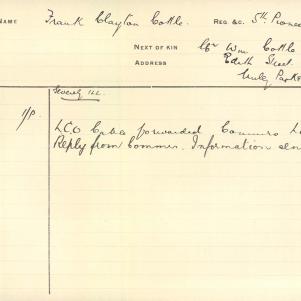 NAME Frank Clayton Cottle. REG &C. 5th Pioneer
NEXT OF KIN Wm Cottle
ADDRESS Edith Street
Unley Park
Severely ill.
1/P. LCO Cable forwarded
Reply from Commrs. Information